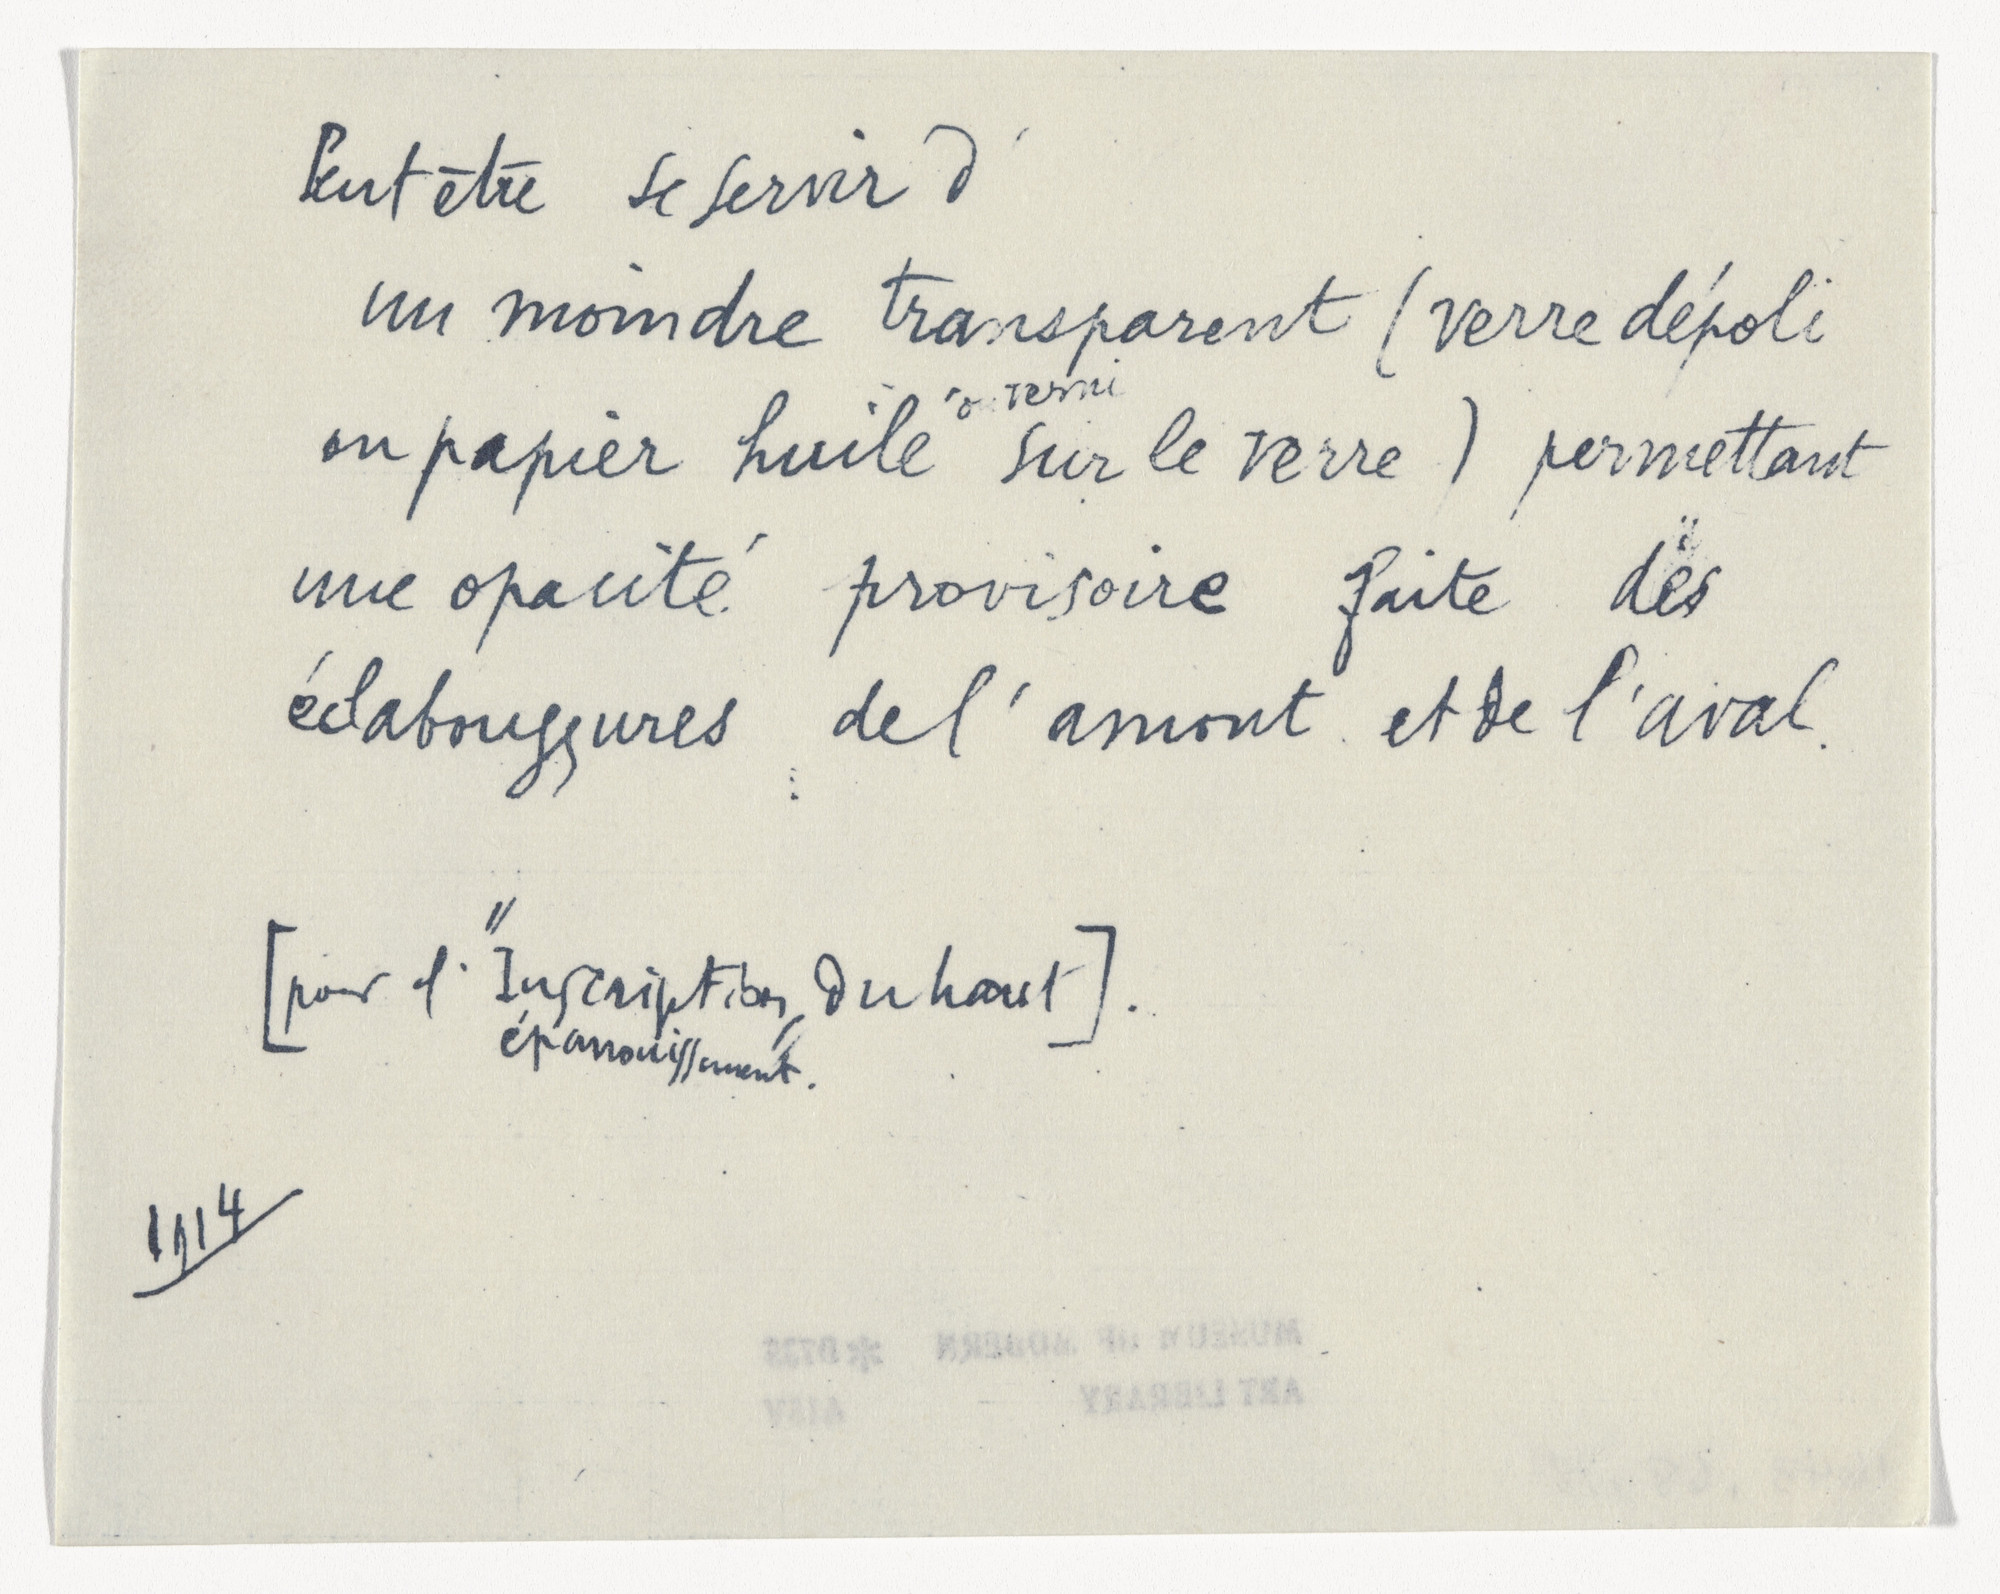 Peut être se servir d'
un moindre transparent (verre dépoli
ou terni
ou papier huilé sur le verre) permettant
une opacité provisoire faite des
éclaboussures de l'amont et de l'aval.
[pour l'"Inscription du haut].
épanouissement.
1914
MUSEUM OF MODERN
ART LIBRARY